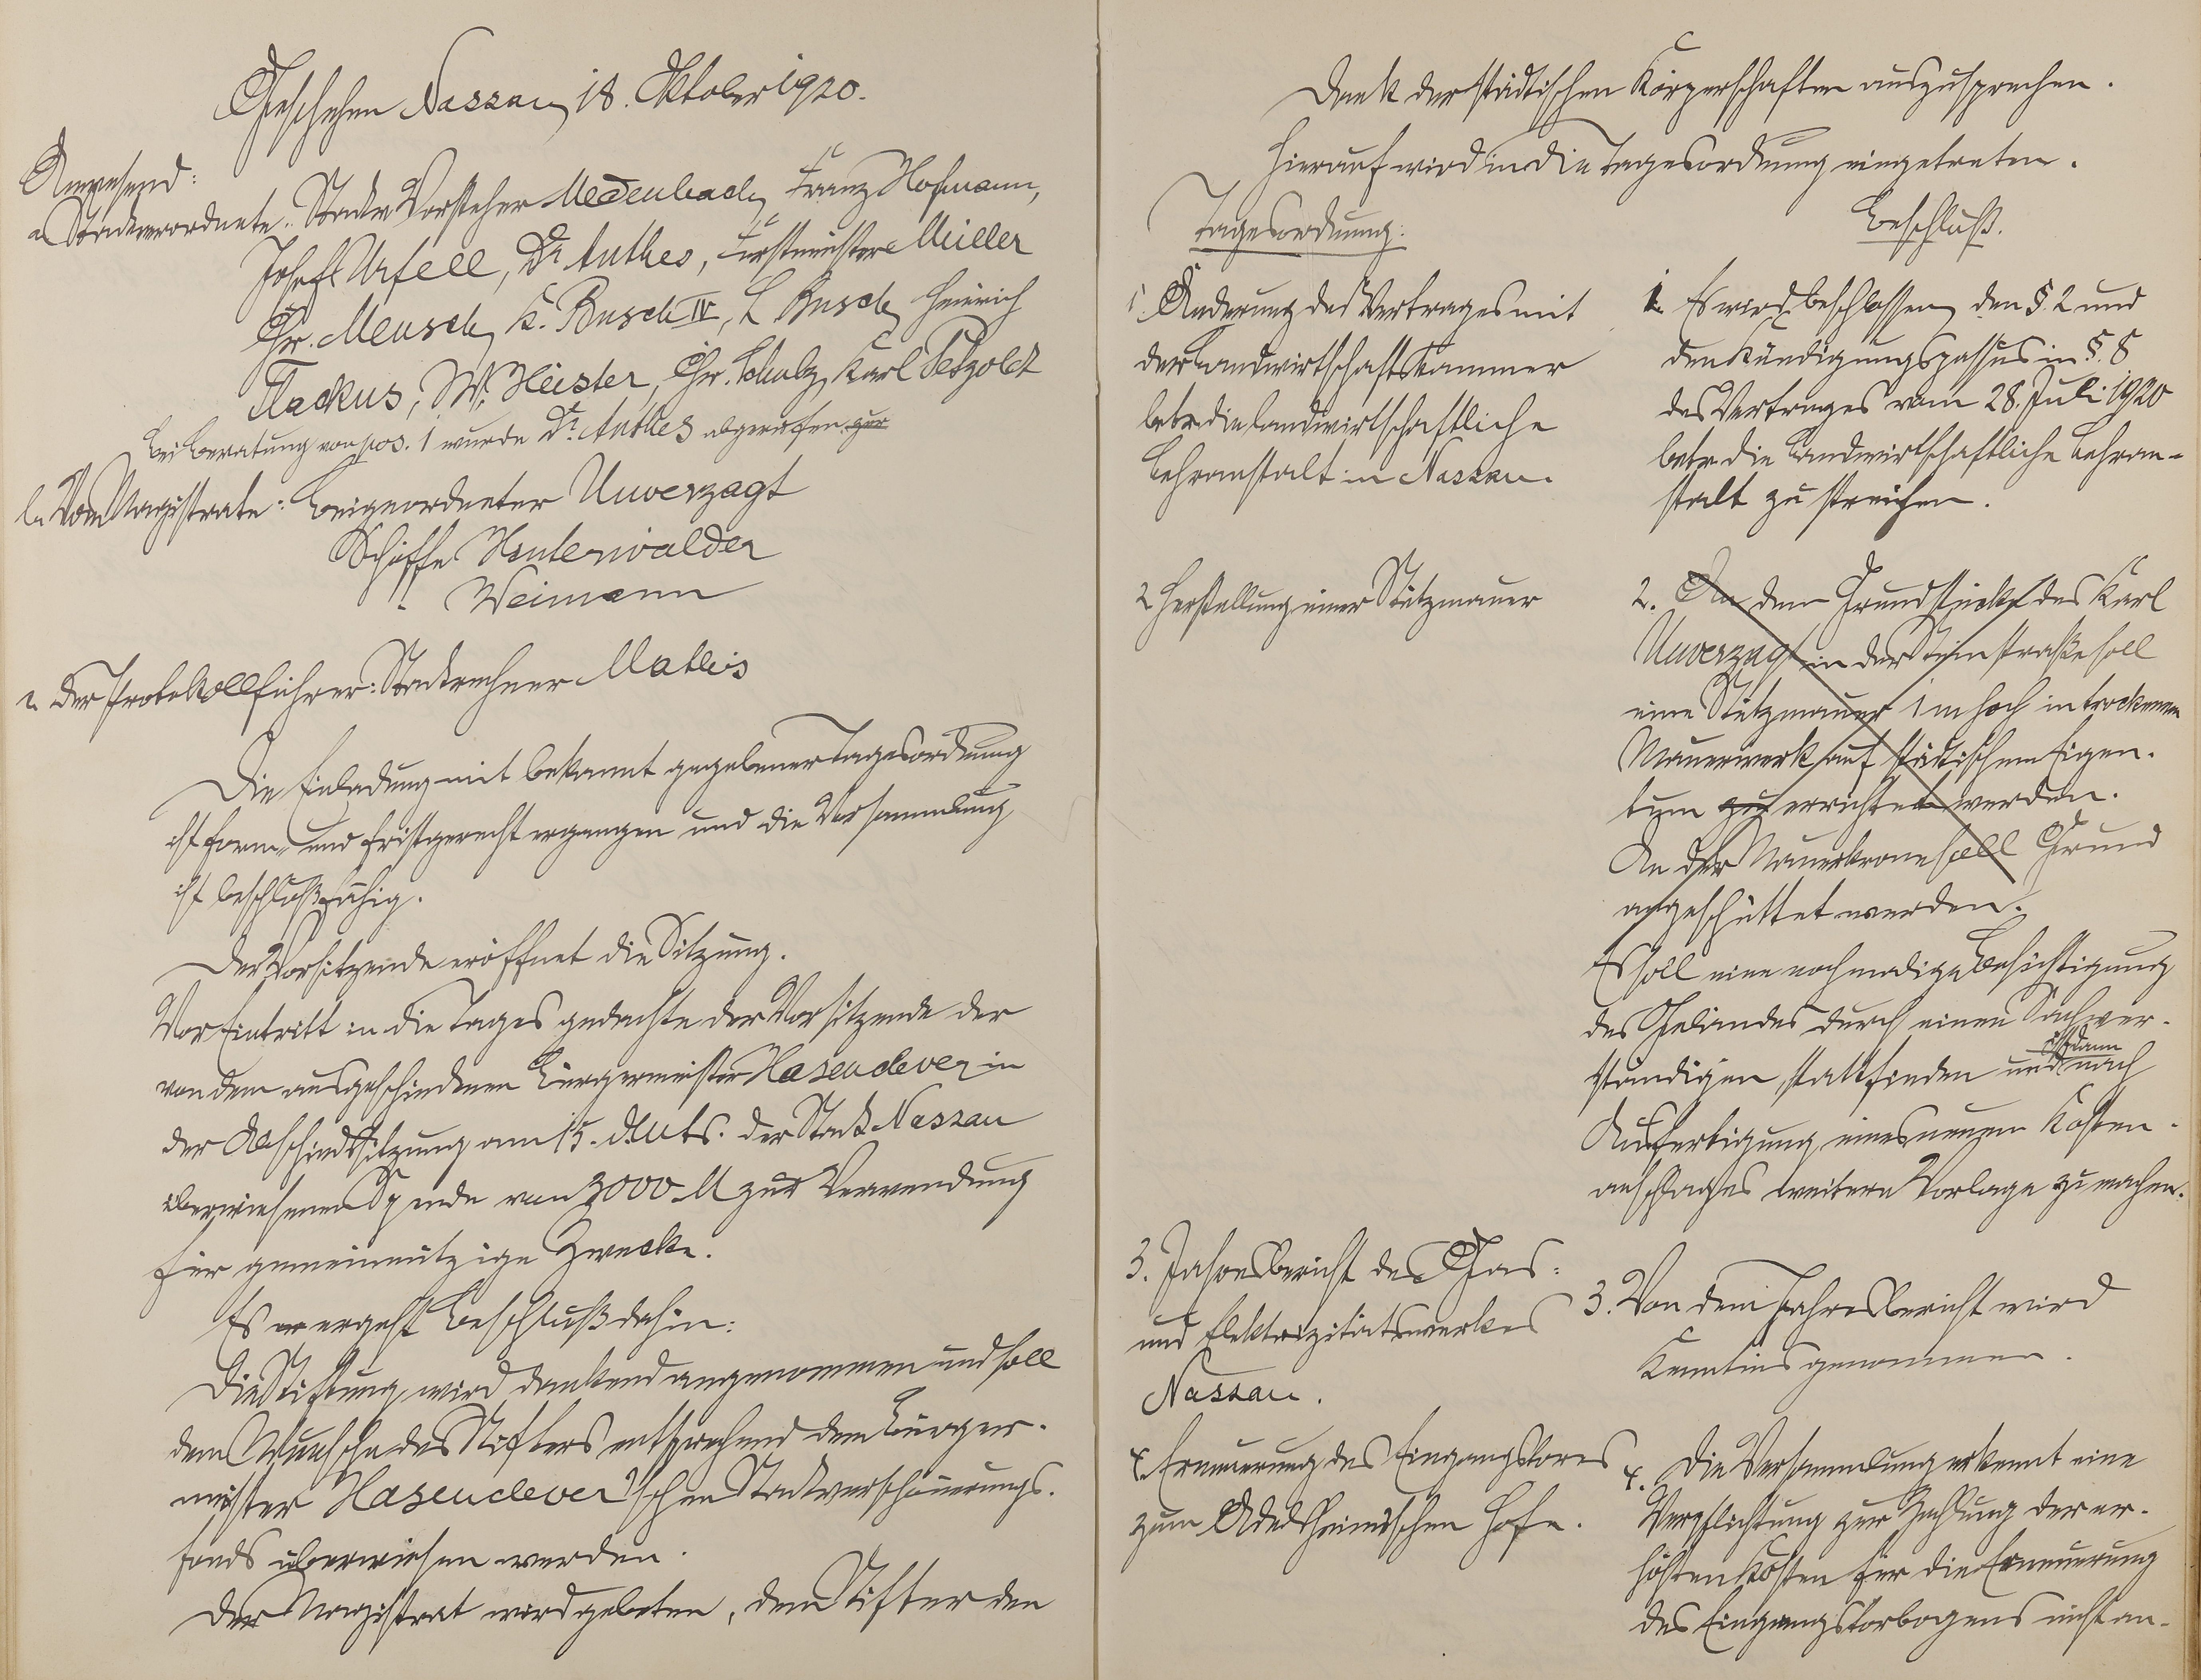 Geschehen Nassau, 18. Oktober 1920.
Anwesend:
a. Stadtverordnete: Stadtv. Vorsteher Medenbach, Franz Hofmann,
Josef Urfell, Dr. Anthes, Forstmeister Müller
Chr. Meusch, K. Busch IV, L Busch, Heinrich
Flackus, W. Heister, Chr. Schulz, Karl Petzold
bei Beratung von pos. 1 wurde Dr. Anthes abgerufen zur
b. Vom Magistrate: Beigeordneter Unverzagt
Schöffe Hinterwälder
" Weimann
c. Der Protokollführer: Stadtrechner Mathis
Die Einladung mit bekannt gegebener Tagesordnung
ist form- und fristgerecht ergangen und die Versammlung
ist beschlußfähig.
Der Vorsitzende eröffnet die Sitzung.
Vor Eintritt in die Tages gedachte der Vorsitzende der
von dem ausgeschiedenen Bürgermeister Hasenclever in
der Abschiedssitzung am 15. d. Mts. der Stadt Nassau
überwiesenen Spende von 3000 M zur Verwendung
für gemeinnützige Zwecke.
Es er ergeht Beschluß dahin:
Die Stiftung wird dankend angenommen und soll
dem Wunsche des Stifters entsprechend dem Bürger-
meister Hasenclever'schen Stadtverschönerungs-
fonds überwiesen werden.
Der Magistrat wird gebeten, dem Stifter den
Dank der städtischen Körperschaften auszusprechen.
Hierauf wird in die Tagesordnung eingetreten.
Tagesordnung:
Beschluß.
1. Änderung des Vertrages mit
der Landwirtschaftskammer
betr. die landwirtschaftliche
Lehranstalt in Nassau.
1. Es wird beschlossen, den §. 2 und
den Kündigungspassus in §. 8
des Vertrages vom 28. Juli 1920
betr. die Landwirtschaftliche Lehran-
stalt zu streichen.
2 Herstellung einer Stützmauer
2. An dem Grundstücke des Karl
Unverzagt in der Steinstraße soll
eine Stützmauer 1 m hoch in trockenem
Mauerwerk auf städtischem Eigen-
tum zu errichtet werden.
An der Mauerkrone soll Grund
angeschüttet werden.
Es soll eine nochmalige Besichtigung
des Geländes durch einen Sachver-
ständigen stattfinden und ist dann nach
Anfertigung eines neuen Kosten-
anschlages weitere Vorlage zu machen.
3. Jahresbericht des Gas-
und Elektrizitätswerkes
Nassau.
3. Von dem Jahresbericht wird
Kenntnis genommen.
4. Erneuerung des Eingangstores
zum Adelsheimischen Hofe.
4. Die Versammlung erkennt eine
Verpflichtung zur Zahlung der er-
höhten Kosten für die Erneuerung
des Eingangstorbogens nicht an.